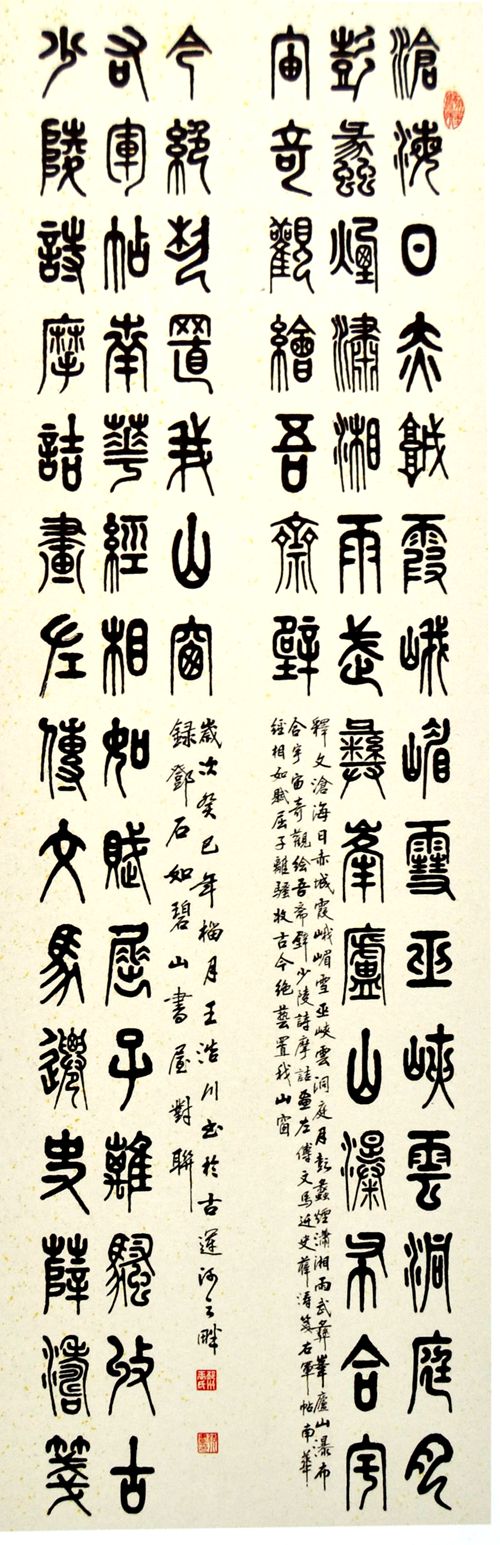 滄海日赤城霞峨嵋雪巫峽雲洞庭月
彭蠡煙瀟湘雨武彝峯廬山瀑布合宇
宙奇觀繪吾齋壁
釋文滄海日赤城霞峨嵋雪巫峽雲洞庭月彭蠡煙瀟湘雨武彝峯廬山瀑布
合宇宙奇觀绘吾斋壁少陵詩摩詰畫左傳文馬迁史薛涛箋右軍帖南華
經相如賦屈子離騷收古今绝藝置我山窗
少陵詩摩詰畫左傳文馬遷史薛濤箋
右軍帖南華經相如賦屈子離騷收古
今絕藝置我山窗
歲次癸巳年榴月王浩川書於古運河之畔
録鄧石如碧山書屋對聯